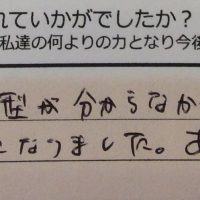 れていかがでしたか？
私達の何よりの力となり今後
型が分からなか
になりました。あ